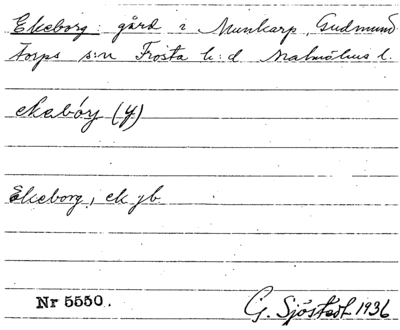 Ekeborg: gård i Munkarp, Gudmund
torps s:n Frosta h:d Malmöhus l.
ekabóry (y)
Ekeborg, ek yb
Nr 5550.
G. Sjöstedt 1936